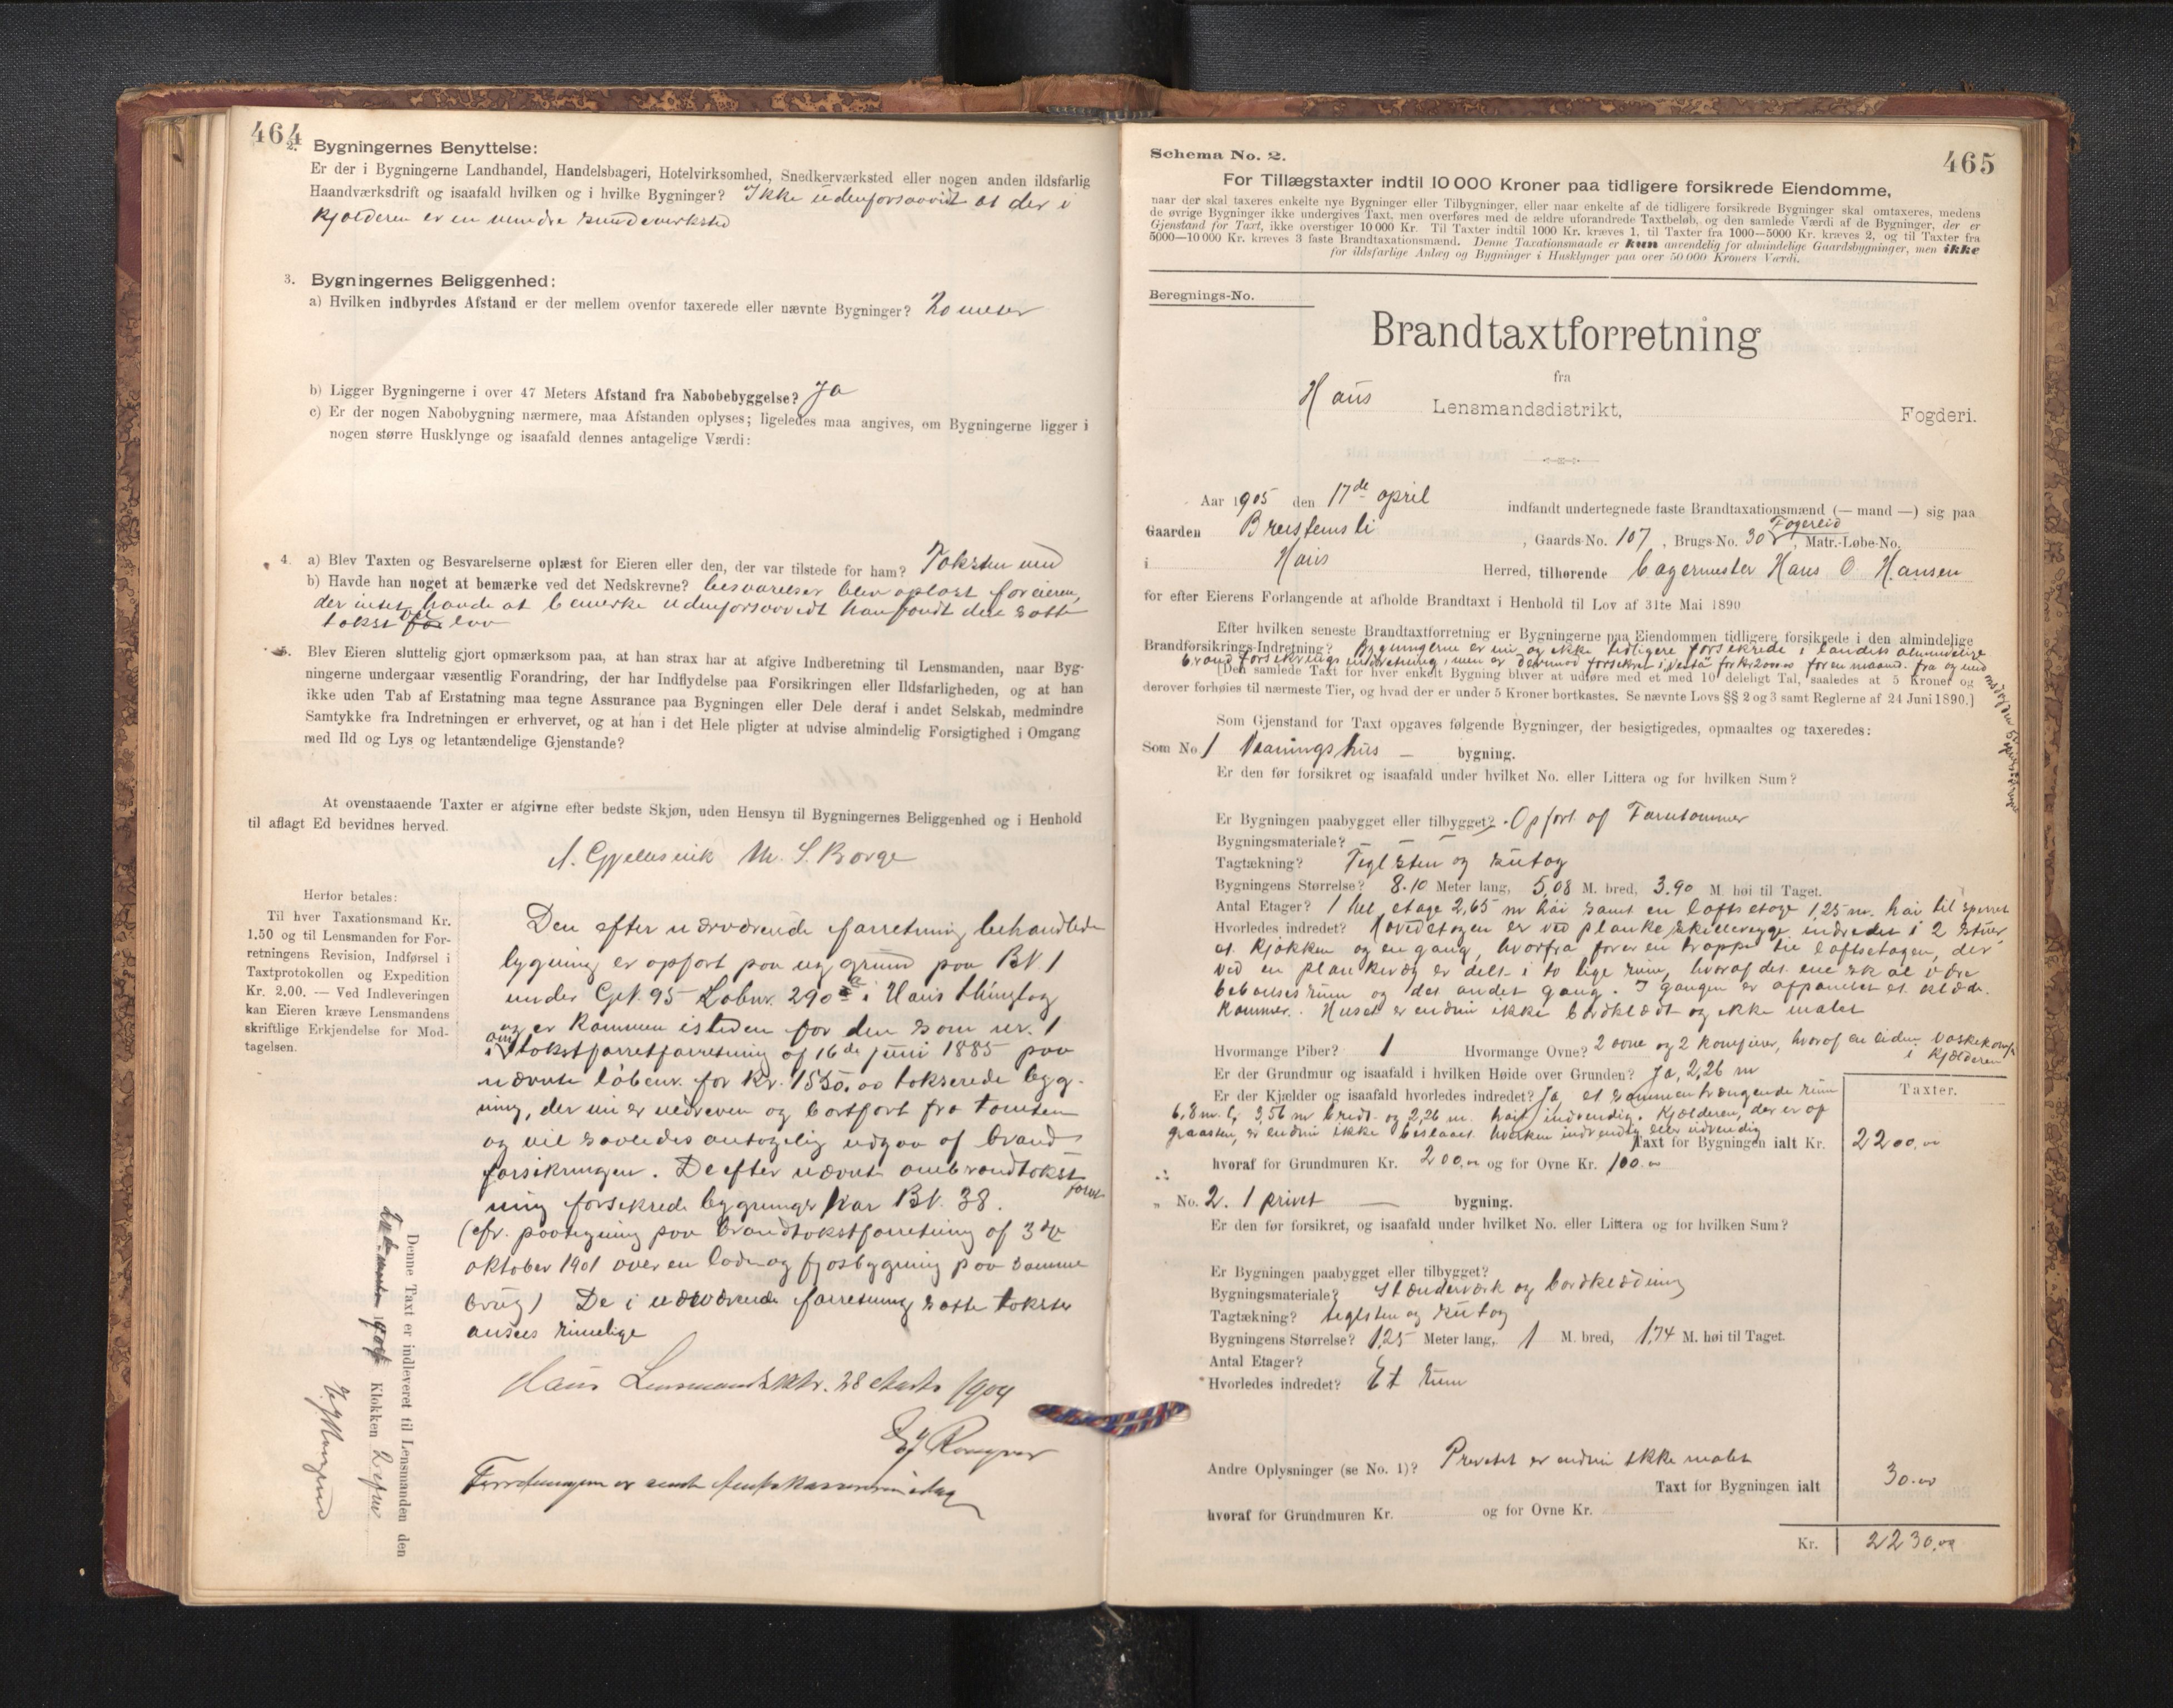 464
2. Bygningernes Benyttelse:
Er der i Bygningerne Landhandel, Handelsbageri, Hotelvirksomhed, Snedkerværksted eller nogen anden ildsfarlig
Haandværksdrift og isaafald hvilken og i hvilke Bygninger? Ikke udenforsaavidt at der i
kjælderen er en mindre
3. Bygningernes Beliggenhed:
a) Hvilken indbyrdes Afstand er der mellem ovenfor taxerede eller nævnte Bygninger? 20 meter
b) Ligger Bygningerne i over 47 Meters Afstand fra Nabobebyggelse? Ja
c) Er der nogen Nabobygning nærmere, maa Afstanden oplyses; ligeledes maa angives, om Bygningerne ligger i
nogen større Husklynge og isaafald dennes antagelige Værdi:
4. a) Blev Taxten og Besvarelserne oplæst for Eieren eller den, der var tilstede for ham? Taksten med
b) Havde han noget at bemærke ved det Nedskrevne? besvarelser blev oplæst for eieren,
der intet havde at bemerke udenforsaavidt han fandt den satte
takst for lav
5. Blev Eieren sluttelig gjort opmærksom paa, at han strax har at afgive Indberetning til Lensmanden, naar Byg-
ningerne undergaar væsentlig Forandring, der har Indflydelse paa Forsikringen eller Ildsfarligheden, og at han
ikke uden Tab af Erstatning maa tegne Assurance paa Bygningen eller Dele deraf i andet Selskab, medmindre
Samtykke fra Indretningen er erhvervet, og at han i det Hele pligter at udvise almindelig Forsigtighed i Omgang
med Ild og Lys og letantændelige Gjenstande?
At ovenstaaende Taxter er afgivne efter bedste Skjøn, uden Hensyn til Bygningernes Beliggenhed og i Henhold
til aflagt Ed bevidnes herved.
M. S. Borge
Herfor betales:
Til hver Taxationsmand Kr.
1.50 og til Lensmanden for For-
retningens Revision, Indførsel i
Taxtprotokollen og Expedition
Kr. 2.00. — Ved Indleveringen
kan Eieren kræve Lensmandens
skriftlige Erkjendelse for Mod-
tagelsen.
Den efter nærværende forretning behandlede
bygning er opført paa ny grund paa BN. 1
under GN. 95 Løbnr. 290 a i Haus thinglag
og er kommen isteden for den som nr. 1
i takstforretforretning af 16de juni 1885 paa
nævnte løbenr. for Kr. 1550.00 takserede byg-
ning, der nu er nedreven og bortført fra tomten
og vil saaledes antagelig udgaa af brand
forsikringen. De efter nævnte ombrandtakst
ning forsikrede bygninger har BN. 38.
(cfr. paategning paa brandtakstforretning af 3die
oktober 1901 over en lade og fjosbygning paa samme
brug) De i nærværende forretning satte takster
ansees rimelige
Haus Lensmandsktr. 28 Marts 1904
Forretningen er sendt Amtskassereren idag
Denne Taxt er indleveret til Lensmanden den
1904 Klokken 2 efm
465
Schema No. 2.
For Tillægstaxter indtil 10 000 Kroner paa tidligere forsikrede Eiendomme,
naar der skal taxeres enkelte nye Bygninger eller Tilbygninger, eller naar enkelte af de tidligere forsikrede Bygninger skal omtaxeres, medens
de øvrige Bygninger ikke undergives Taxt, men overføres med de ældre uforandrede Taxtbeløb, og den samlede Værdi af de Bygninger, der er
Gjenstand for Taxt, ikke overstiger 10 000 Kr. Til Taxter indtil 1000 Kr. kræves 1, til Taxter fra 1000—5000 Kr. kræves 2, og til Taxter fra
5000—10 000 Kr. kræves 3 faste Brandtaxationsmænd. Denne Taxationsmaade er kun anvendelig for almindelige Gaardsbygninger, men ikke
for ildsfarlige Anlæg og Bygninger i Husklynger paa over 50 000 Kroners Værdi.
Beregnings-No.
Brandtaxtforretning
fra
Haus Lensmandsdistrikt, Fogderi.
Aar 1905 den 17de april indfandt undertegnede faste Brandtaxationsmænd (— mand —) sig paa
Gaarden Breistensli , Gaards-No. 107 , Brugs-No. 30 Fogereid , Matr.-Løbe-No.
i Haus Herred, tilhørende bagermester Hans O Hansen
for efter Eierens Forlangende at afholde Brandtaxt i Henhold til Lov af 31te Mai 1890
Efter hvilken seneste Brandtaxtforretning er Bygningerne paa Eiendommen tidligere forsikrede i den almindelige
Brandforsikrings-Indretning? Bygningerne er nu og ikke tidligere forsikrede i landets almindelige
brandforsikrings indretning, men er derimod forsikret i Vesta for kr 2000.00 for en maaned fra og med
[Den samlede Taxt for hver enkelt Bygning bliver at udføre med et med 10 deleligt Tal, saaledes at 5 Kroner og
derover forhøies til nærmeste Tier, og hvad der er under 5 Kroner bortkastes. Se nævnte Lovs §§ 2 og 3 samt Reglerne af 24 Juni 1890.]
Som Gjenstand for Taxt opgaves følgende Bygninger, der besigtigedes, opmaaltes og taxeredes:
Som No 1 Vaaningshus — bygning.
Er den før forsikret og isaafald under hvilket No. eller Littera og for hvilken Sum?
Er Bygningen paabygget eller tilbygget? Opført af
Bygningsmateriale?
Tagtækning? Teglsten og sutag
Bygningens Størrelse? 8.10 Meter lang, 5,08 M. bred, 3.90 M. høi til Taget.
Antal Etager? 1 hel etage 2,65 m høi samt en loftsetage 1,25 m. høi til sperret
Hvorledes indredet? Hovedetagen er ved planke skillevægge indredet i 2 stuer
et kjøkken og en gang, hvorfra fører en trappe til loftsetagen, der
ved en plankevæg er delt i to lige rum, hvoraf det ene skal være
beboelses rum og det andet gang. I gangen er afpanelet et klæde-
kammer. Huset er endnu ikke bordklædt og ikke malet
Hvormange Piber? 1 Hvormange Ovne? 2 ovne og 2 komfurer, hvoraf en liden vaskekomfur
i Kjælderen
Er der Grundmur og isaafald i hvilken Høide over Grunden? Ja, 2,26 m
Er der Kjælder og isaafald hvorledes indredet? Ja, et sammenhængende rum
6,8 m. l; 3,56 m bredt og 2,26 m. høit indvendig. Kjælderen, der er af
graasten, er endnu ikke beslaaet hverken indvendig eller udvendig
Taxter.
Taxt for Bygningen ialt Kr. 2200,00
hvoraf for Grundmuren Kr. 200,00 og for Ovne Kr. 100.00
" No. 2. 1 privet — bygning.
Er den før forsikret, og isaafald under hvilket No. eller Littera og for hvilken Sum?
Er Bygningen paabygget eller tilbygget?
Bygningsmateriale? Stænderværk og bordklædning
Tagtækning? teglsten og sutag
Bygningens Størrelse? 1,25 Meter lang, 1 M. bred, 1,74 M. høi til Taget.
Antal Etager?
Hvorledes indredet? Et rum
Andre Oplysninger (se No. 1)? Privetet er endnu ikke malet
Taxt for Bygningen ialt 30.00
hvoraf for Grundmuren Kr. og for Ovne Kr.
Kr. 2230,00